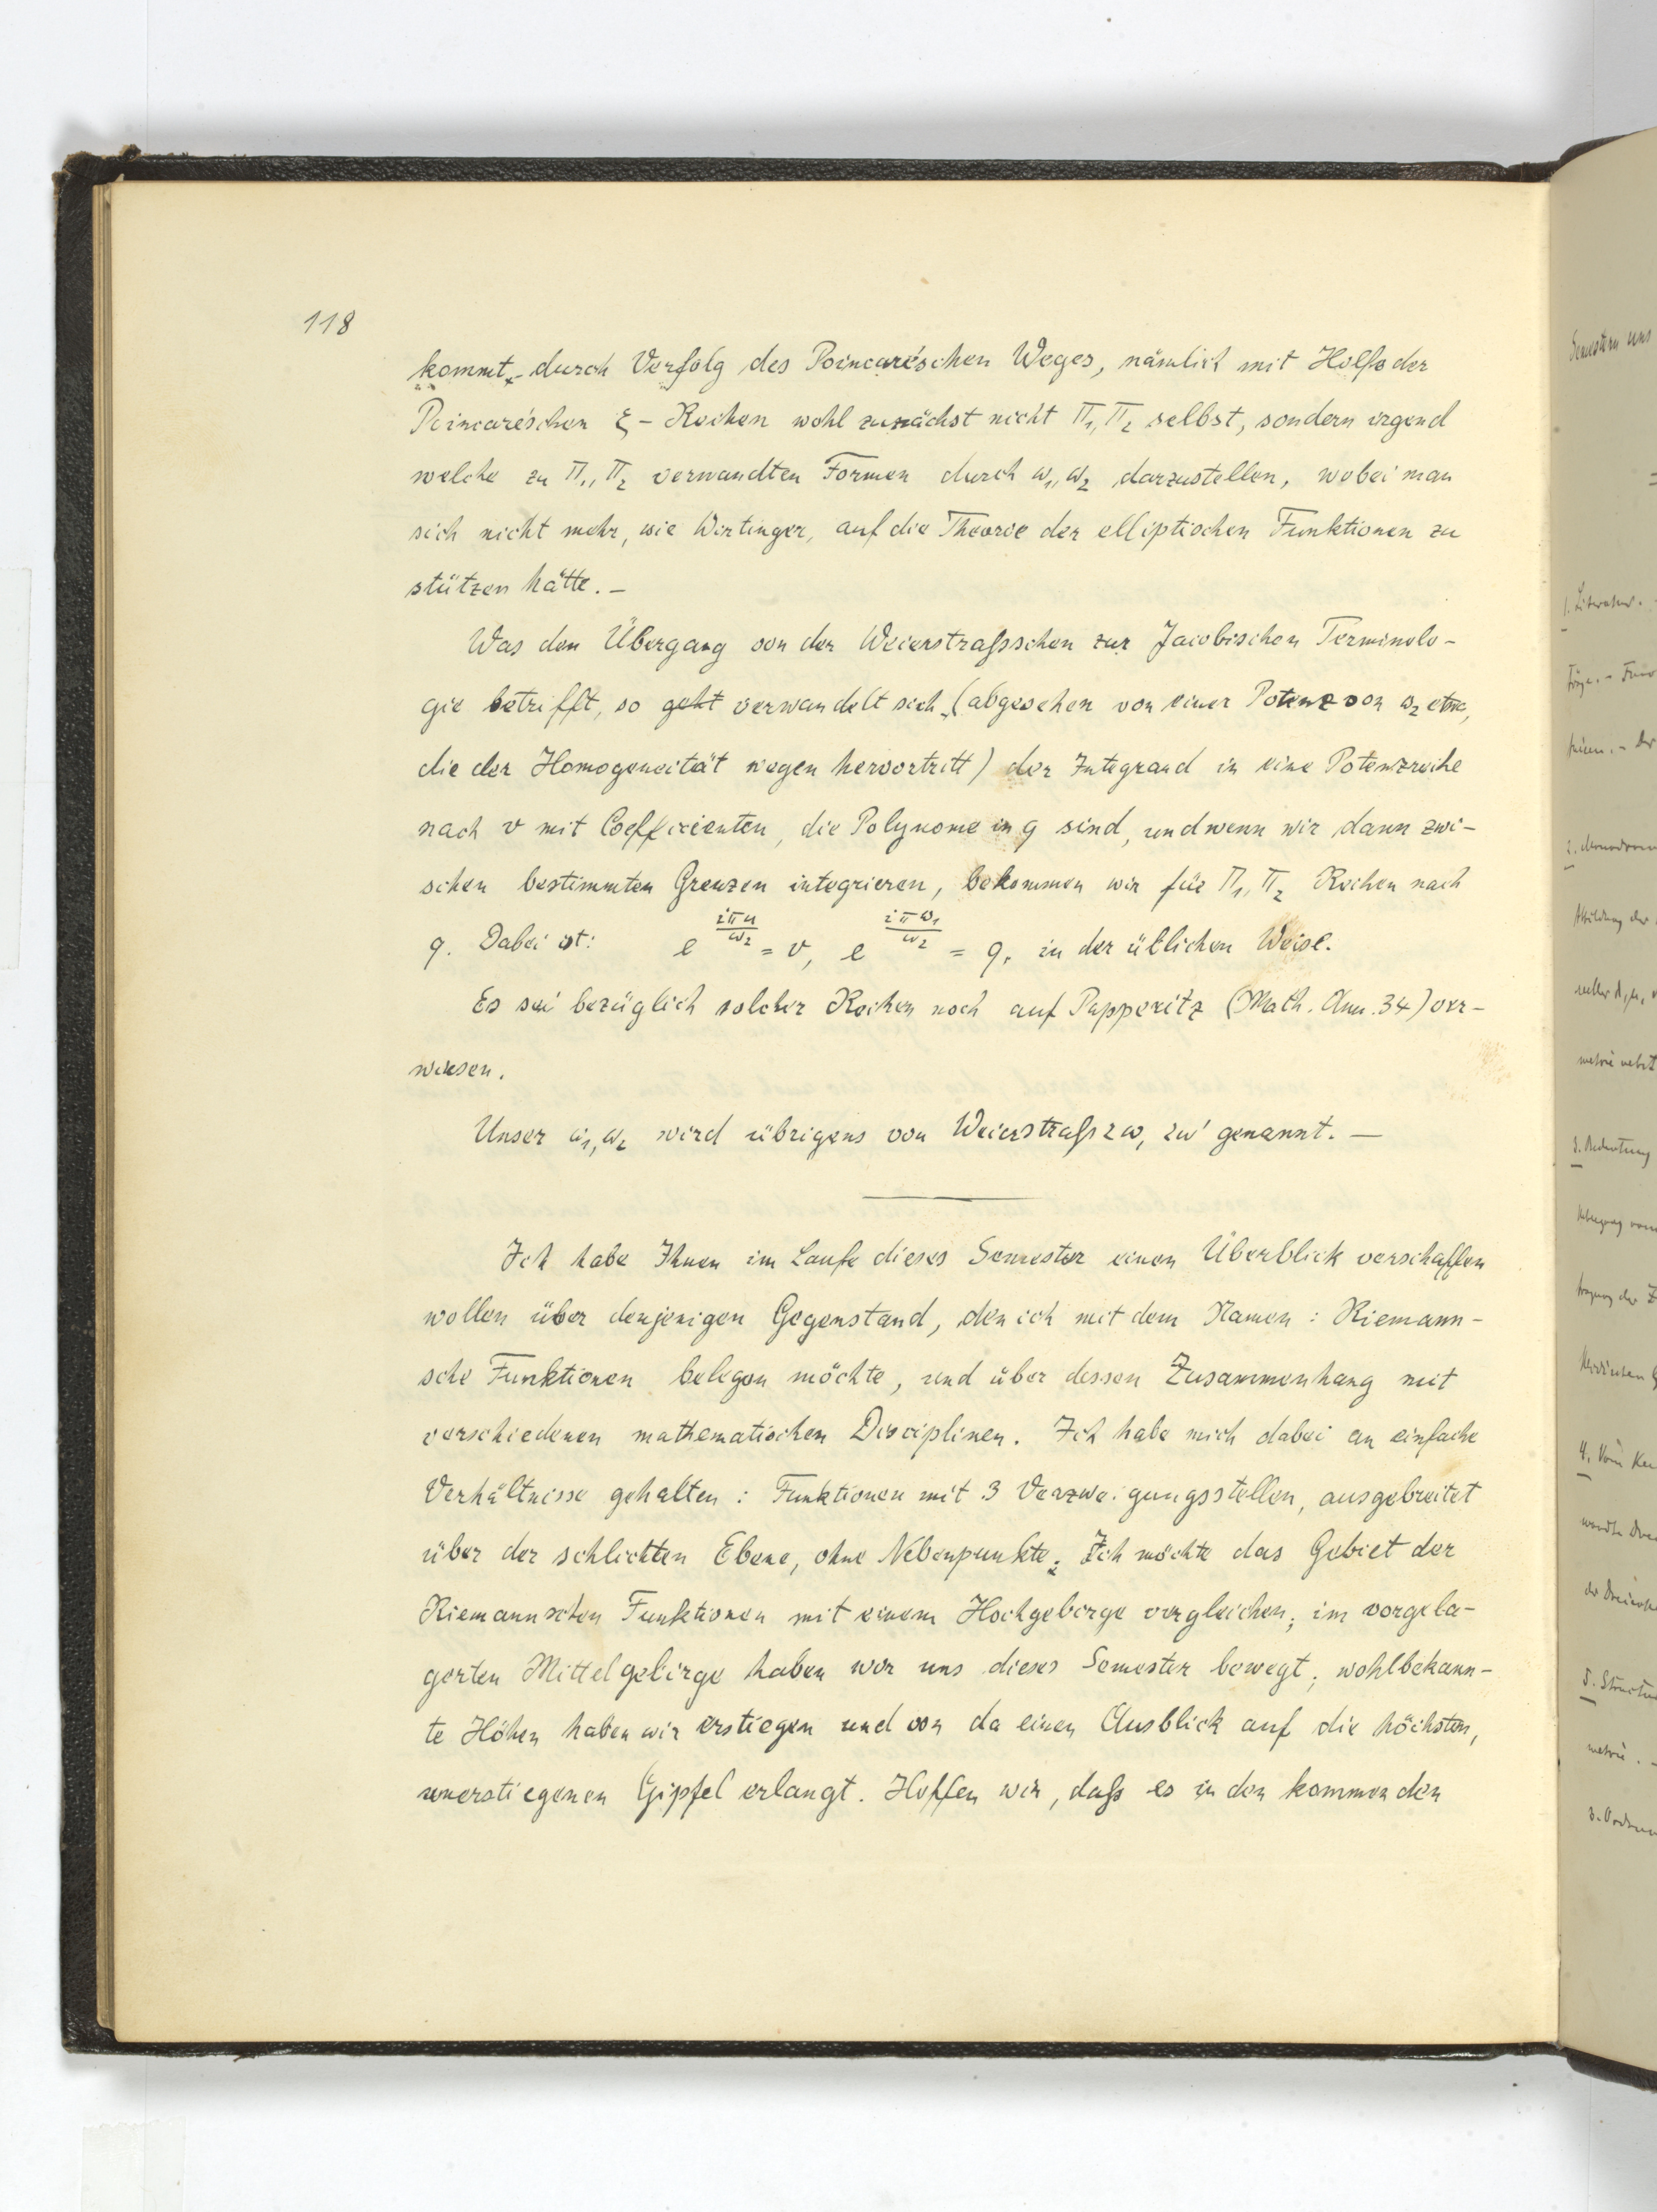 118
kommt, durch Verfolg des Poincaré'schen Weges, nämlich mit Hülfe der
Poincaré'schen ξ-Reihen wohl zunächst nicht Π₁, Π₂ selbst, sondern irgend
welche zu Π₁, Π₂ verwandten Formen durch ω₁, ω₂ darzustellen, wobei man
sich nicht mehr, wie Wirtinger, auf die Theorie der elliptischen Funktionen zu
stützen hätte. –
Was den Übergang von der Weierstraßschen zur Jacobischen Terminolo-
gie betrifft, so geht verwandelt sich (abgesehen von einer Potenz von ω₂ etwa,
die der Homogeneität wegen hervortritt) der Integrand in eine Potenzreihe
nach v mit Coefficienten, die Polynome in q sind, und wenn wir dann zwi-
schen bestimmten Grenzen integrieren, bekommen wir für Π₁, Π₂ Reihen nach
q. Dabei ist: e^{iπu/ω₂} = v, e^{iπω₁/ω₂} = q, in der üblichen Weise.
Es sei bezüglich solcher Reihen noch auf Papperitz (Math. Ann. 34) ver-
wiesen.
Unser ω₁, ω₂ wird übrigens von Weierstraß 2ω, 2ω' genannt. –
Ich habe Ihnen im Laufe dieses Semester einen Überblick verschaffen
wollen über denjenigen Gegenstand, den ich mit dem Namen: Riemann-
sche Funktionen belegen möchte, und über dessen Zusammenhang mit
verschiedenen mathematischen Disciplinen. Ich habe mich dabei an einfache
Verhältnisse gehalten: Funktionen mit 3 Verzweigungsstellen, ausgebreitet
über der schlichten Ebene, ohne Nebenpunkte. Ich möchte das Gebiet der
Riemannschen Funktionen mit einem Hochgebirge vergleichen; im vorgela-
gerten Mittelgebirge haben wir uns dieses Semester bewegt; wohlbekann-
te Höhen haben wir erstiegen und von da einen Ausblick auf die höchsten,
unerstiegenen Gipfel erlangt. Hoffen wir, daß es in den kommenden
Semestern uns
1. Literatur.
3. Bedeutung